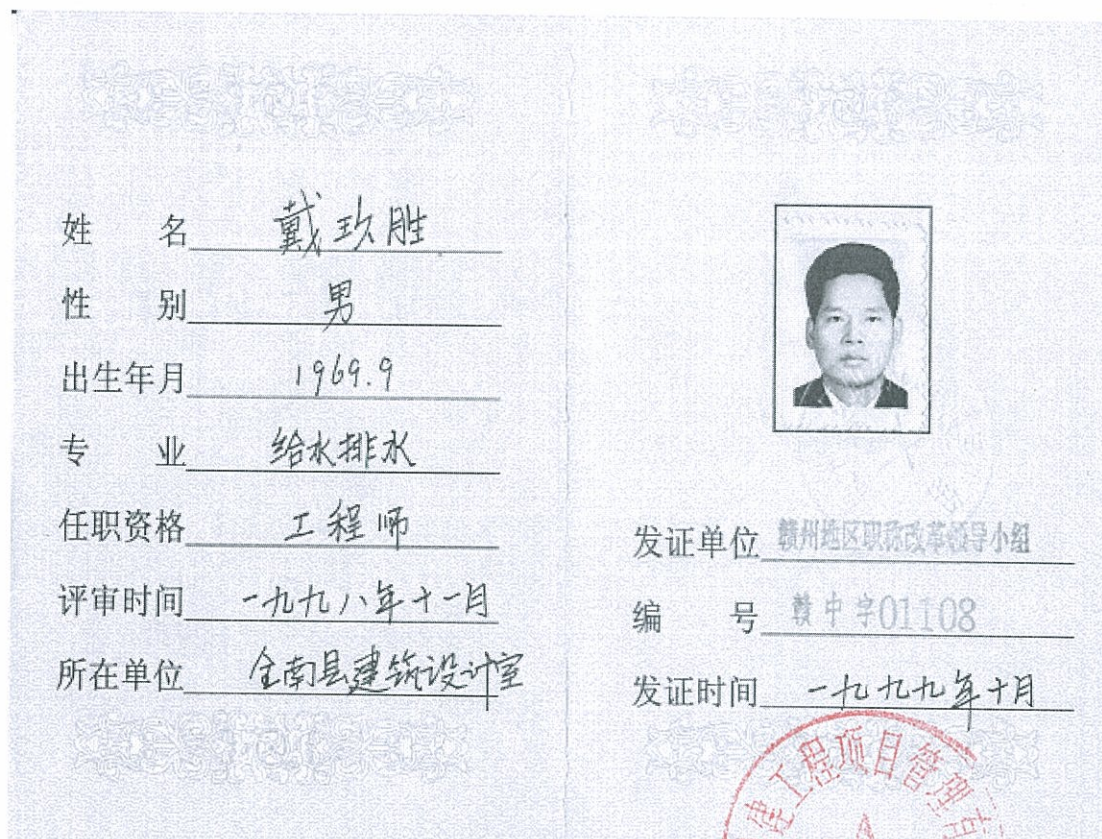 姓 名 戴玖胜
性 别 男
出生年月 1969.9
专 业 给水排水
任职资格 工程师
评审时间 一九九八年十一月
所在单位 全南县建筑设计室
发证单位 赣州地区职称改革领导小组
编 号 赣中字01108
发证时间 一九九九年十月
建工程项目管理有